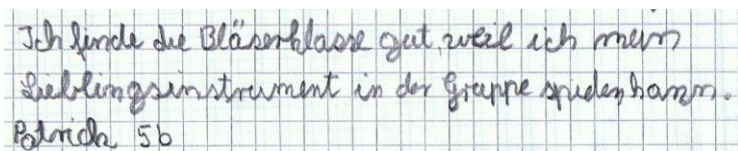 Ich finde die Bläserklasse gut, weil ich mein
Lieblingsinstrument in der Gruppe spielen kann.
Patrick 5b